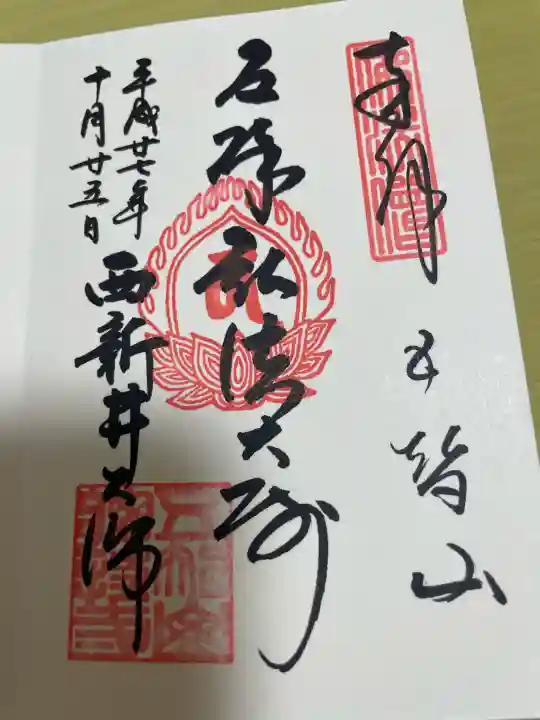 奉拝
五智山
厄除弘法大師
平成廿七年
十月廿五日
西新井大師